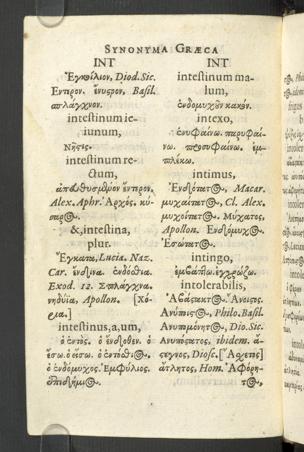 SYNONYMA GRÆCA
INT
Ἐγκοίλιον, Diod. Sic.
Ἔντερον. ἔνυστρον, Basil.
σπλάγχνον.
intestinum ie-
iunium,
Νῆστις.
intestinum re-
ctum,
ἀπευθυσμένον ἔντερον,
Alex. Aphr. Ἀρχός. κύ-
&, intestina,
plur.
Ἔγκατα, Lucia. Naz.
Car. ἔνδινα. ἐνδόσθια.
Exod. 12. Σπλάγχνα.
νηδύϊα, Apollon. [Χό-
intestinus, a, um,
ὁ ἐντός. ὁ ἔνδοθεν. ὁ
ἔσω. ὁ εἴσω. ὁ ἐντόσθιος,
ὁ ἐνδόμυχος. Ἐμφύλιος.
ἐπιδήμιος.
INT
intestinum ma-
lum,
ἐνδομυχοῦν κακόν.
intexo,
ἐνυφαίνω. παρυφαί-
νω. προσυφαίνω. ἐμ-
πλέκω.
intimus,
Ἐνδότατος, Macar.
μυχαίτατος, Cl. Alex.
μυχοίτατος. Μύχατος,
Apollon. Ἐνδόμυχος.
Ἐσώτατος.
intingo,
ἐμβάπτω. ἐγχρώζω.
intolerabilis,
Ἀβάστακτος. Ἄνεκτος.
Philo. Basil.
Ἀνυπομόνητος, Dio. Sic.
Ἀνύποιστος, ibidem. ἄ-
στεγνος, Diosc. [Ἄσχετος]
ἄτλητος, Hom. Ἀφόρη-
τος,